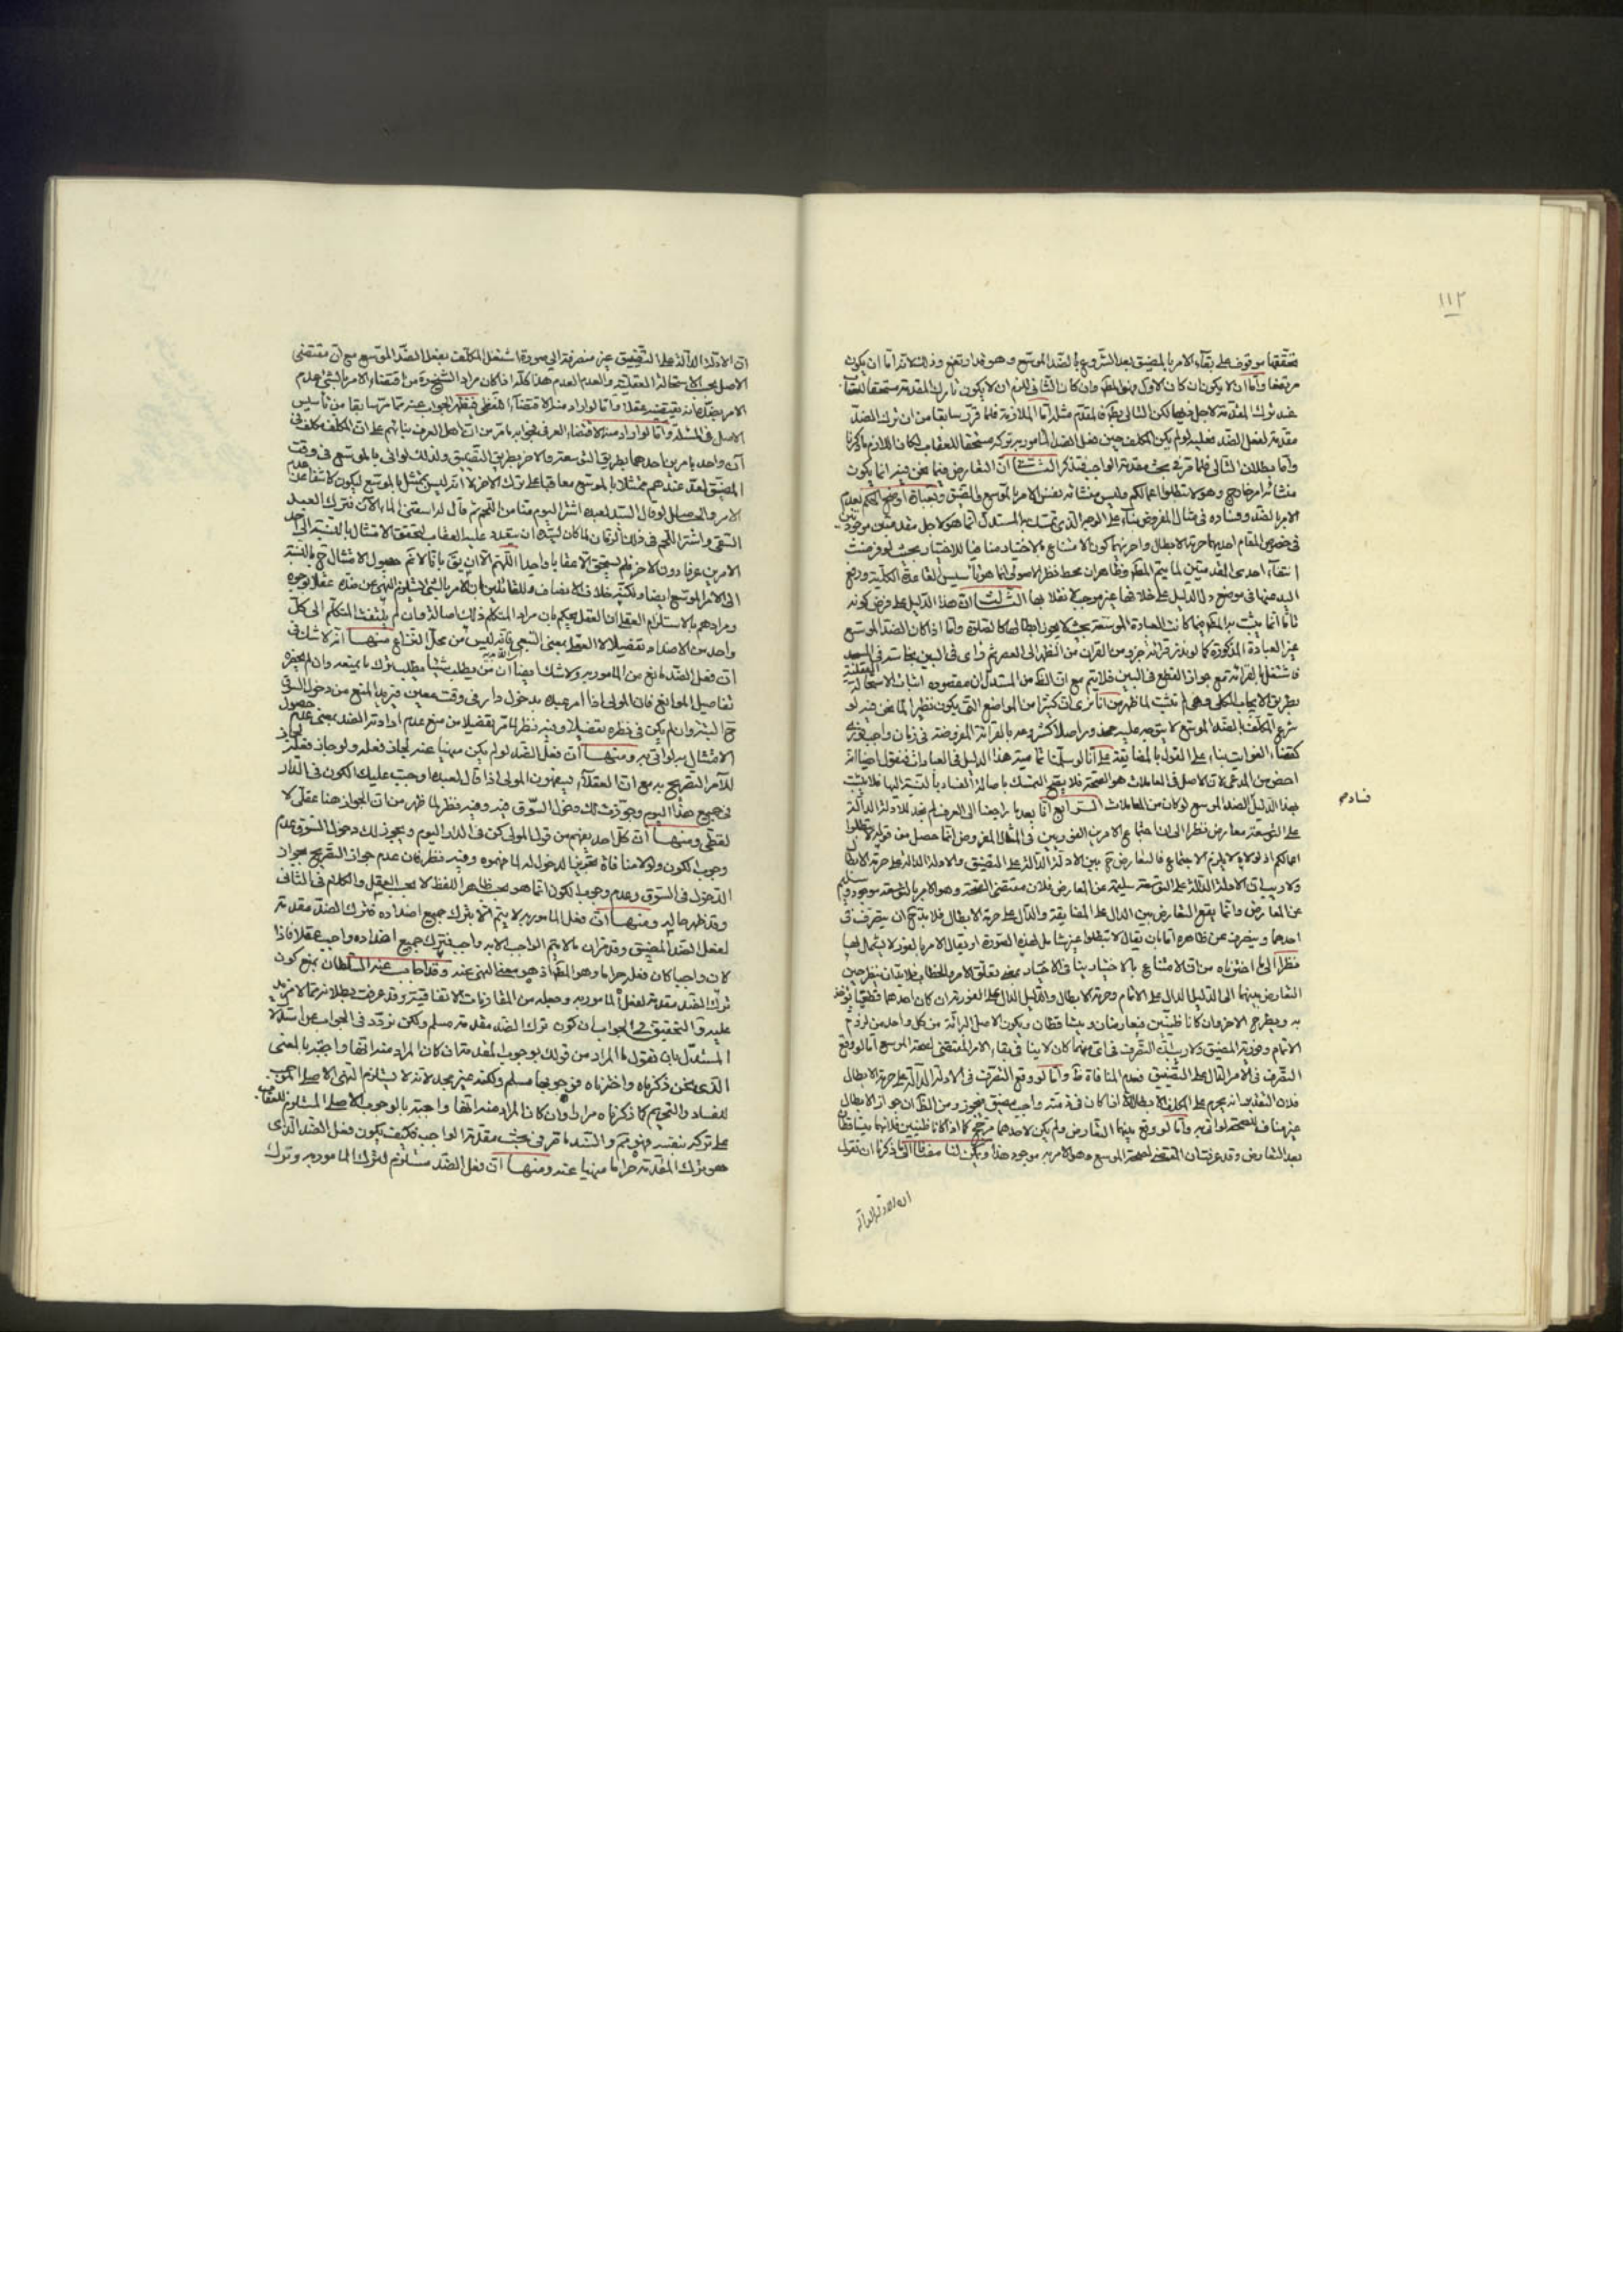 ١١٢
تحققها موقوف على بقاء الامر بالمضيق بعد الشروع في الضد الموسع وهو قد ارتفع وذلك لانه اما ان يكون
مرتفعا واما ان لا يكون فان كان الاول فهو المط وان كان الثاني للزم ان لا يكون تارك المقدمة مستحقا للعقاب
عند ترك المقدمة لاجل فيها لكن التالى بط فالمقدم مثله اما الملازمة فلما قرر سابقا من ان ترك الضد
مقدمة لفعل الضد فعليه لو لم يكن المكلف حين فعل الضد المأمور بتركه مستحقا للعقاب لكان اللازم ما ذكرنا
واما بطلان التالى فلما قرر في بحث مقدمة الواجب فتذكر الثاني ان التعارض فيما نحن فيه انما يكون
منشائه امر خارج وهو لا تبطلوا اعمالكم وليس منشائه نفس الامر بالموسع والمضيق وبعبارة اوضح الحكم بعدم
الامر بالضد وفساده في مثال المفروض بناء على الوجه الذى تمسك به المستدل انما هو لاجل مقدمتين موجودتين
في خصوص المقام احديهما حرمة الابطال واخريهما كون الامتناع بالاختيار منافيا للاختيار بحيث لو فرضت
انتفاء احدى المقدمتين لما يتم المط وظاهر ان محط نظر الاصولى انما هو تأسيس القاعدة الكلية ورفع
اليد عنها في موضع دل الدليل على خلافها غير موجب لانقلابها الثالث ان هذا الدليل على فرض كونه
تاما انما يثبت به المط فيما كانت العبادة الموسعة بحيث لا يجوز ابطالها كالصلوة واما اذا كان الضد الموسع
غير العبادة المذكورة كما لو نذر قرائة جزء من القران من الظهر الى العصر ثم راى في البين نجاسة في المسجد
فاشتغل بالقرائة مع جواز القطع في البين فلا يتم مع ان الظ من المستدل ان مقصوده اثبات الاستحالة العقلية
بطريق الايجاب الكلى وهى لم تثبت لما ظهر من انا نرى ان كثيرا من المواضع التى يكون نظيرا لما نحن فيه لو
شرع المكلف بالضد الموسع لا يتوجه عليه
كقضاء الفوايت بناء على القول بالمضايقة على انا لو سلمنا تمامية هذا الدليل في العبادات فنقول ايضا انه
اخص من المدعى لان الاصل في المعاملات هو الصحة فلا يصح التمسك باصالة الفساد بالنسبة اليها فلا يثبت
فساده
بهذا الدليل الضد الموسع لو كان من المعاملات الرابع انا بعد ما راجعنا الى العرف لم نجد للادلة الدالة
على التوسعة معارض نظرا الى ان اجتماع الامرين الفوريين في المثال المفروض انما حصل من قوله لا تبطلوا
اعمالكم اذ لولاه لا يلزم الاجتماع فالتعارض ثم بين الادلة الدالة على التضيق والادلة الدالة على حرمة الابطال
ولا ريب ان الادلة الدالة على التوسعة سليمة عن المعارض فلان مقتضى الصحة وهو الامر بالتوسعة موجود وسليم
عن المعارض وانما يقع التعارض بين الدال على المضايقة والدال على حرمة الابطال فلا بد ح ان يتصرف في
احدهما ويصرف عن ظاهره اما بان يقال لا تبطلوا غير شامل لهذه الصورة او يقال الامر بالفور لا يشمل لها
نظرا الى ما اخترناه من ان الامتناع بالاختيار ينافى الاختيار بمعنى تعلق الامر والخطاب فلا بد ان ينظر حين
التعارض بينهما الى الدليل الدال على الاتمام وحرمة الابطال والدليل الدال على الفورية ان كان احدهما قطعيا يؤخذ
به ويطرح الاخر وان كانا ظنيين فيتعارضان ويتساقطان ويكون الاصل البرائة من كل واحد من لزوم
الاتمام وفورية المضيق ولا ريب ان التصرف في اى منهما كان لا ينافى بقاء الامر المقتضى لصحة الموسع اما لو وقع
التصرف في الامر الدال على التضيق فعدم المنافاة ظ واما لو وقع التصرف في الادلة الدالة على حرمة الابطال
فلان التقدير انه يحرم على المكلف الابطال الا اذا كان في ذمته واجب مضيق فيجوز ومن الظ ان جواز الابطال
غير مناف للصحة لو اتى به واما لو وقع بينهما التعارض ولم يكن لاحدهما مرجح كما اذا كانا ظنيين فلانهما يتساقطان
بعد التعارض وقد عرفت ان المقتضى لصحة الموسع وهو الامر به موجود هذا ويمكن لنا مضافا الى ما ذكرنا ان نقول
ان الادلة الدالة
ان الادلة الدالة على التضييق غير منصرفة الى صورة اشتغل المكلف بفعل الضد الموسع مع ان مقتضى
الاصل بحسب الاستحالة العقلية والعدم العدم هذا كله اذا كان مراد الشيخ ره من اقتضاء الامر بالشئ عدم
الامر بضده انه يقتضيه عقلا واما لو اراد منه الاقتضاء اللفظى فيظهر الجواب عنه مما مر سابقا من تأسيس
الاصل في المسئلة واما لو اراد منه الاقتضاء العرفى فجوابه ما مر من ان اهل العرف بنائهم على ان المكلف مكلف في
آن واحد بامرين احدهما بطريق التوسعة والاخر بطريق التضييق ولذلك لو اتى بالموسع في وقت
المضيق لعد عندهم ممتثلا بالموسع معاقبا على ترك الاخر لا انه ليس بممتثل بالموسع ليكون كاشفا عن عدم
الامر والحاصل لو قال السيد لعبده اشتر اليوم منا من اللحم ثم قال له اسقنى الماء الان فترك العبد
السقى واشترى اللحم في ذلك الزمان لما كان لسيده ان يتعدد عليه العقاب لتحقق الامتثال بالنسبة الى احد
الامرين عرفا دون الاخر فلم يستحق الا عقابا واحدا اللهم الا ان يق بانا لا نم حصول الامتثال ح بالنسبة
الى الامر الموسع ايضا ولكنه خلاف الانصاف وللقائلين بان الامر بالشئ يستلزم النهى عن ضده عقلا وجوه
ومرادهم بالاستلزام العقلى ان العقل يحكم بان مراد المتكلم ذلك اصالة وان لم يلتفت المتكلم الى كل
واحد من الاضداد تفصيلا لا العقلى بمعنى التبعى فانه ليس من محل النزاع منها انه لا شك في
ان فعل الضد مانع من المأمور به ولا شك ايضا ان من يطلب شيئا يطلب ترك ما يمنعه وان لم يخطره
تفاصيل الموانع فان المولى اذا امر عبده بدخول دار في وقت معين فيريد المنع من دخول السوق
ح البتة وان لم يكن في نظره تفصيلا وفيه نظر لما مر تفصيلا من منع عدم ارادة الضد بمعنى عدم حصول
الامتثال به لو اتى به ومنها ان فعل الضد لو لم يكن منهيا عنه لجاز فعله ولو جاز فعله لجاز
للآمر التصريح به مع ان العقلاء يسفهون المولى اذا قال لعبده اوجبت عليك الكون في الدار
في جميع هذا اليوم وجوزت لك دخول السوق فيه وفيه نظر لما ظهر من ان الجواز هنا عقلى لا
لفظى ومنها ان كل احد يفهم من قول المولى كن في الدار اليوم ويجوز لك دخول السوق عدم
وجوب الكون ولولا منافاة تجويز الدخول له لما فهموه وفيه نظر فان عدم جواز التصريح بجواز
الدخول في السوق وعدم وجوب الكون انما هو بحسب ظاهر اللفظ لا بحسب العقل والكلام في الثاني
وقد ظهر حاله ومنها ان فعل المأمور به لا يتم الا بترك جميع اضداده فترك الضد مقدمة
لفعل الضد المضيق وقد مر ان ما لا يتم الواجب الا به واجب فترك جميع اضداده واجب عقلا فاذا
كان واجبا كان فعله حراما وهو المط اذ هو معنى النهى عنه وقد اجاب عنه السلطان بمنع كون
ترك الضد مقدمة لفعل المأمور به وجعله من المقارنات الاتفاقية وقد عرفت بطلانه بما لا مزيد
عليه والتحقيق في الجواب ان كون ترك الضد مقدمة مسلم ولكن نردد في الجواب عن استدلال
المستدل بان نقول ما المراد من قولك بوجوب المقدمة ان كان المراد منه انها واجبة بالمعنى
الذى نحن ذكرناه واخترناه فوجوبها مسلم ولكنه غير مجد لانه لا يستلزم النهى الاصلى الموجب
للفساد والتحريم كما ذكرناه مرارا وان كان المراد منه انها واجبة بالوجوب الاصلى المستلزم للعقاب
على تركه بنفسه فهو مم والسند ما قرر في بحث مقدمة الواجب فكيف يكون فعل الضد الذى
هو ترك المقدمة حراما منهيا عنه ومنها ان فعل الضد مستلزم لترك المأمور به وترك